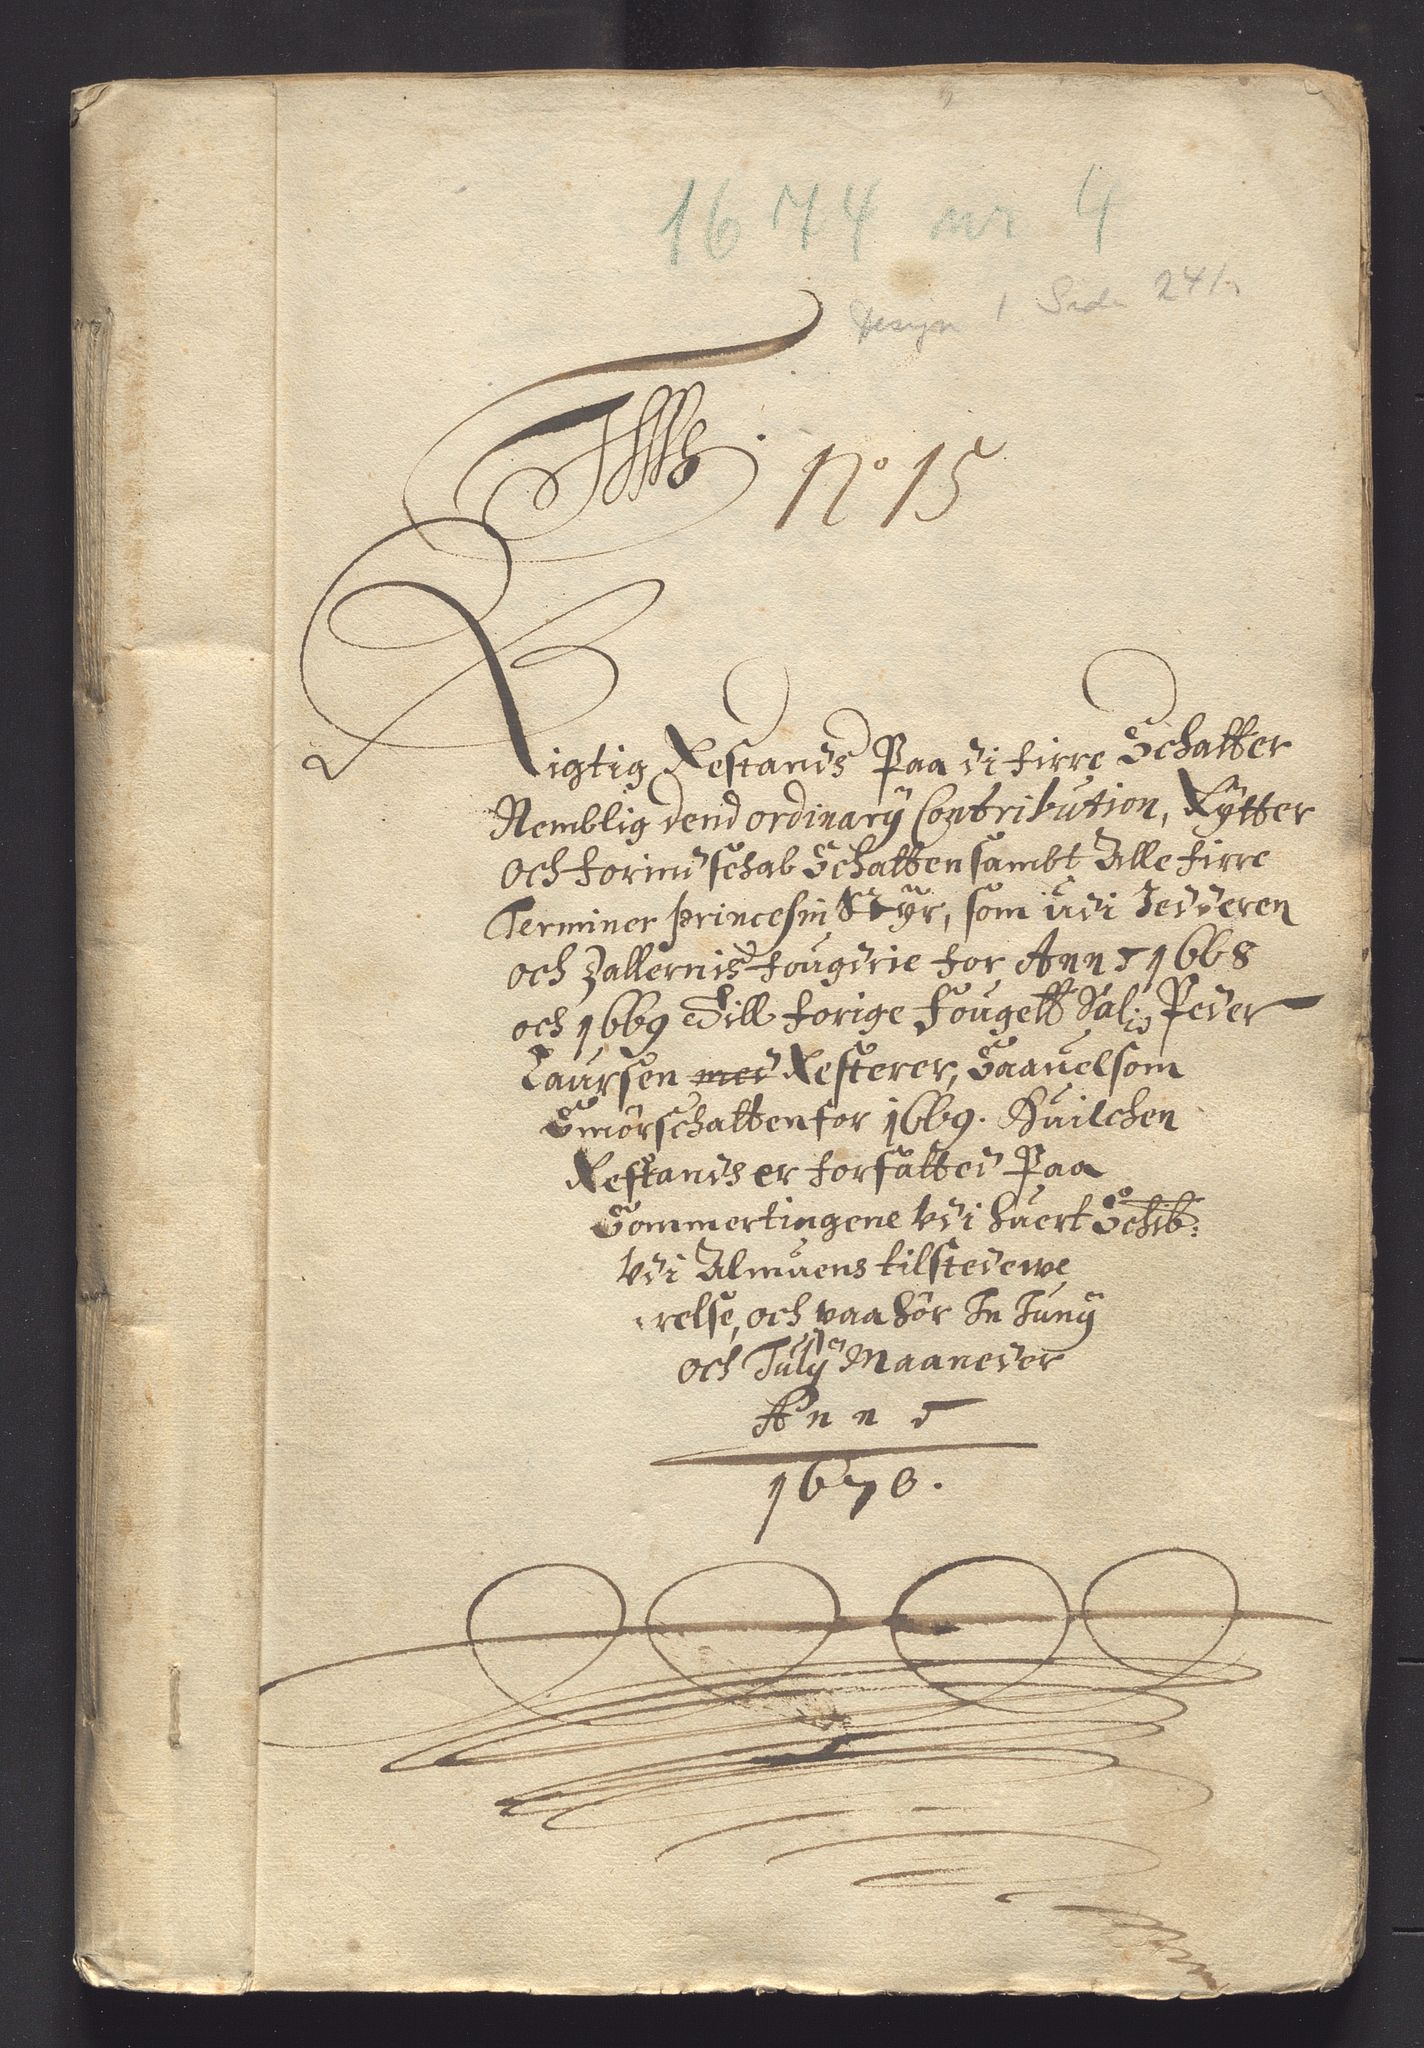 1674 nr 4
1 Side 241
No 15
Rigtig Restands Paa di firre Schatter
Nemblig dend ordinarÿ Contribution, Rÿtter
och forindschab Schatten sambt Alle firre
Terminer princesin Styr, som üdi Jedderen
och Dallernis fougdrie for Anno 1668
och 1669 Till forige fougett Sal: Peder
Laursen med Resterer, Saauelsom
Smörschatten for 1669. Huilchen
Restands er forfatted Paa
Sommertingene Udi huert Schib:
Udi Almuens tilstedewe
relse, och paahör In Junÿ
och Julÿ Maaneder
Anno
1670.